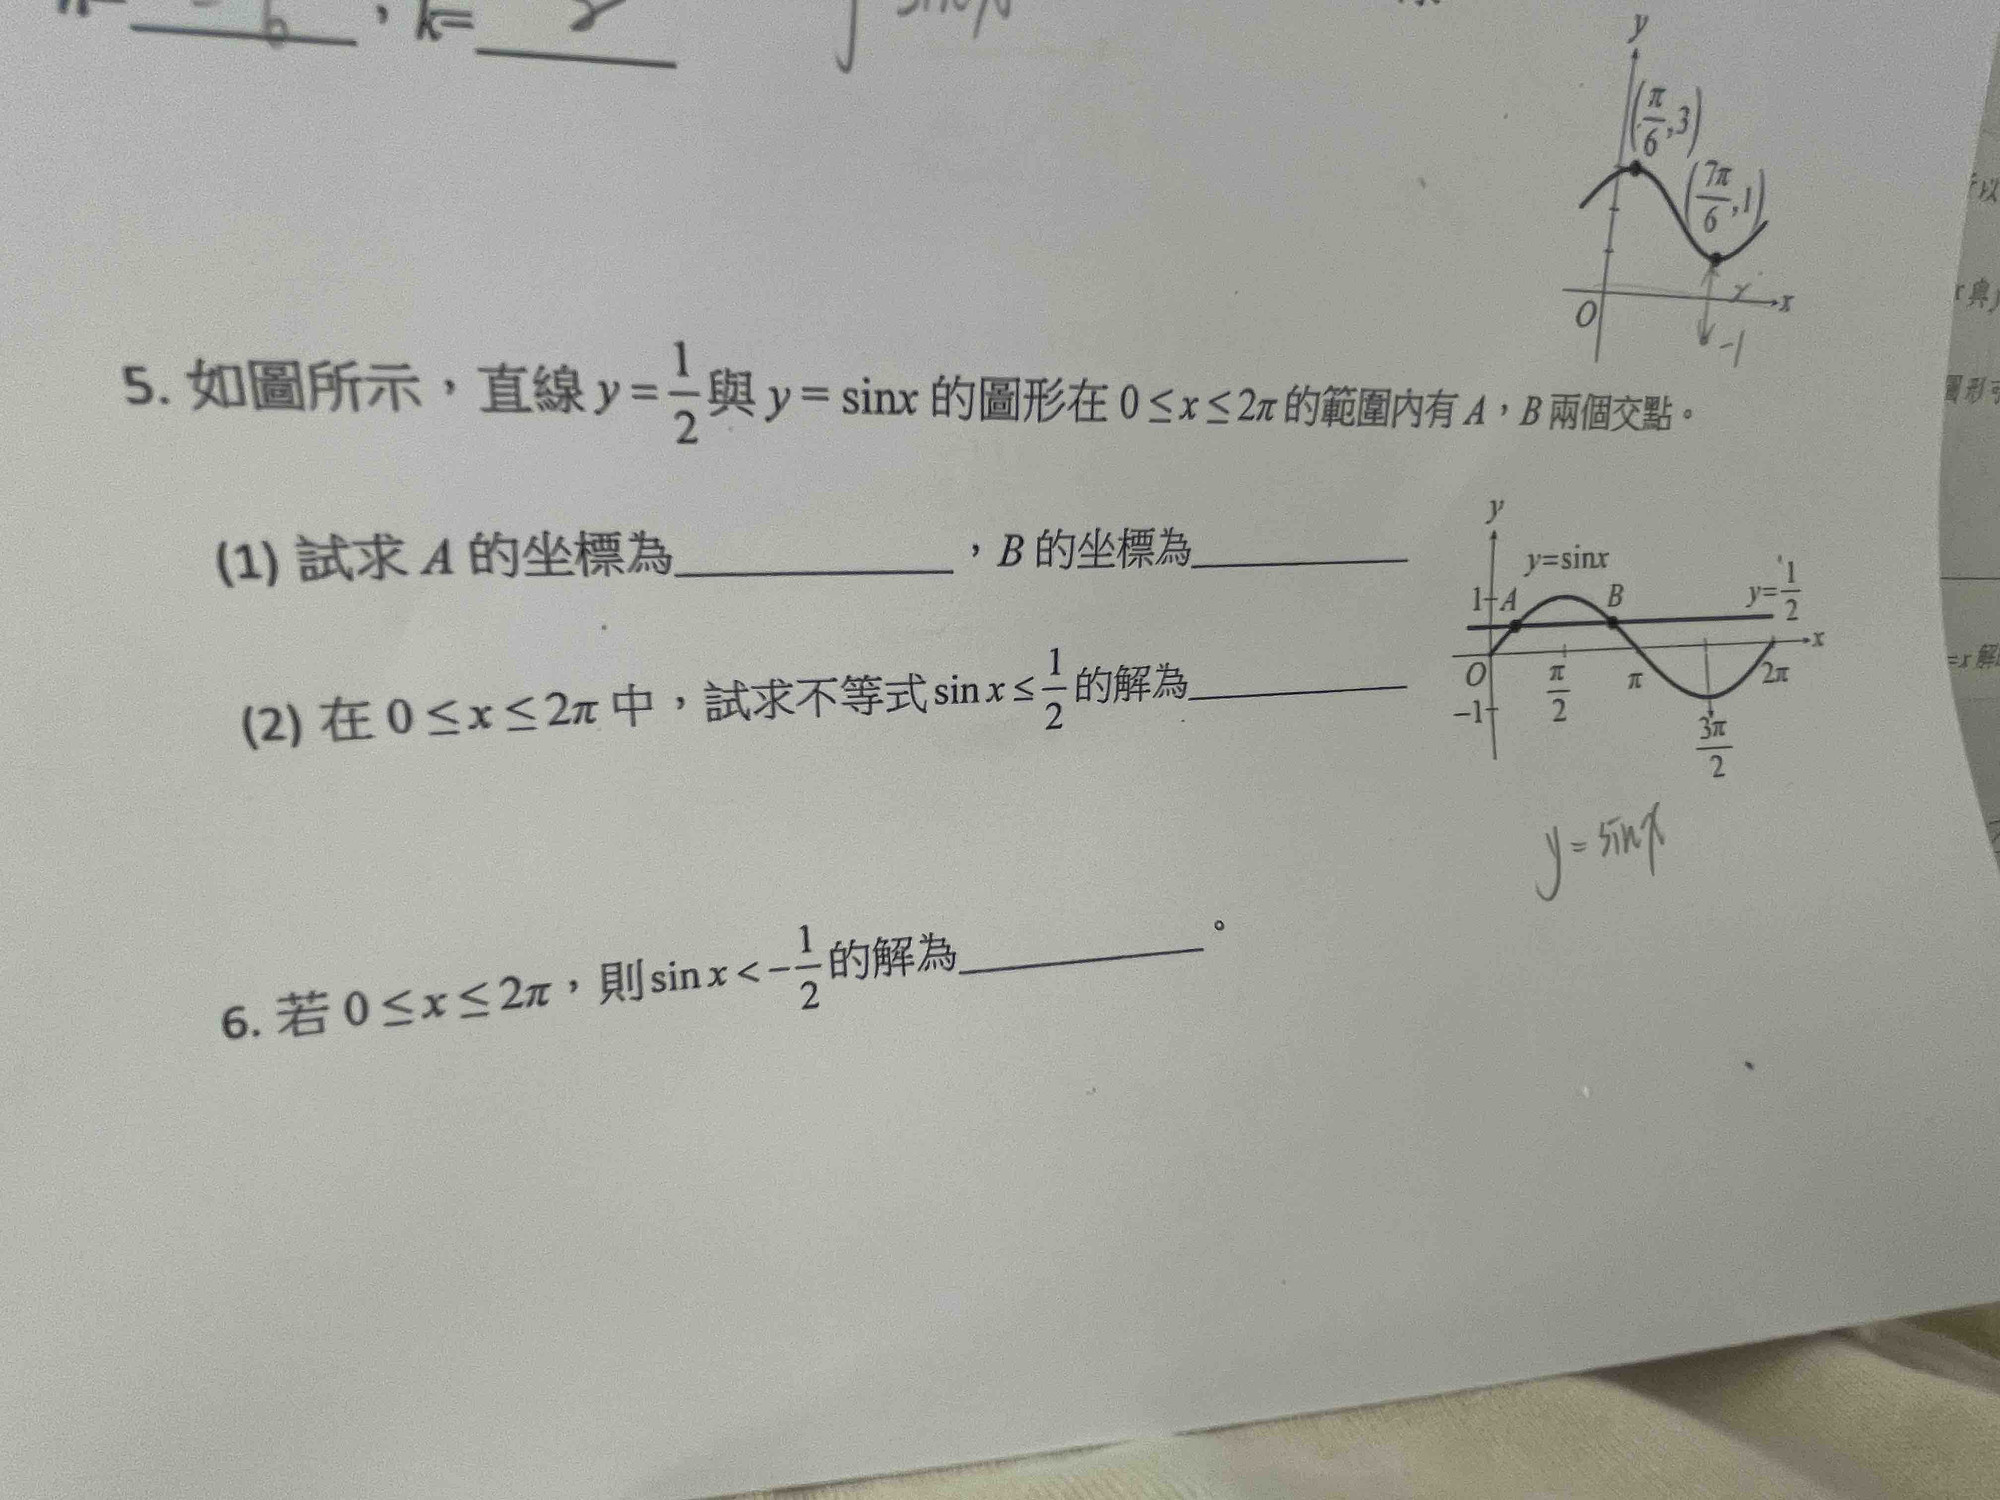 , k= 2
sinx
y
(π/6, 3)
(7π/6, 1)
O
x
-1
5. 如圖所示，直線 y = 1/2 與 y = sinx 的圖形在 0 ≤ x ≤ 2π 的範圍內有 A，B 兩個交點。
(1) 試求 A 的坐標為____________，B 的坐標為__________
(2) 在 0 ≤ x ≤ 2π 中，試求不等式 sin x ≤ 1/2 的解為__________
y
y=sinx
1 A B y=1/2
x
O π/2 π 2π
-1
3π/2
y = sinx
6. 若 0 ≤ x ≤ 2π，則 sin x < -1/2 的解為__________。